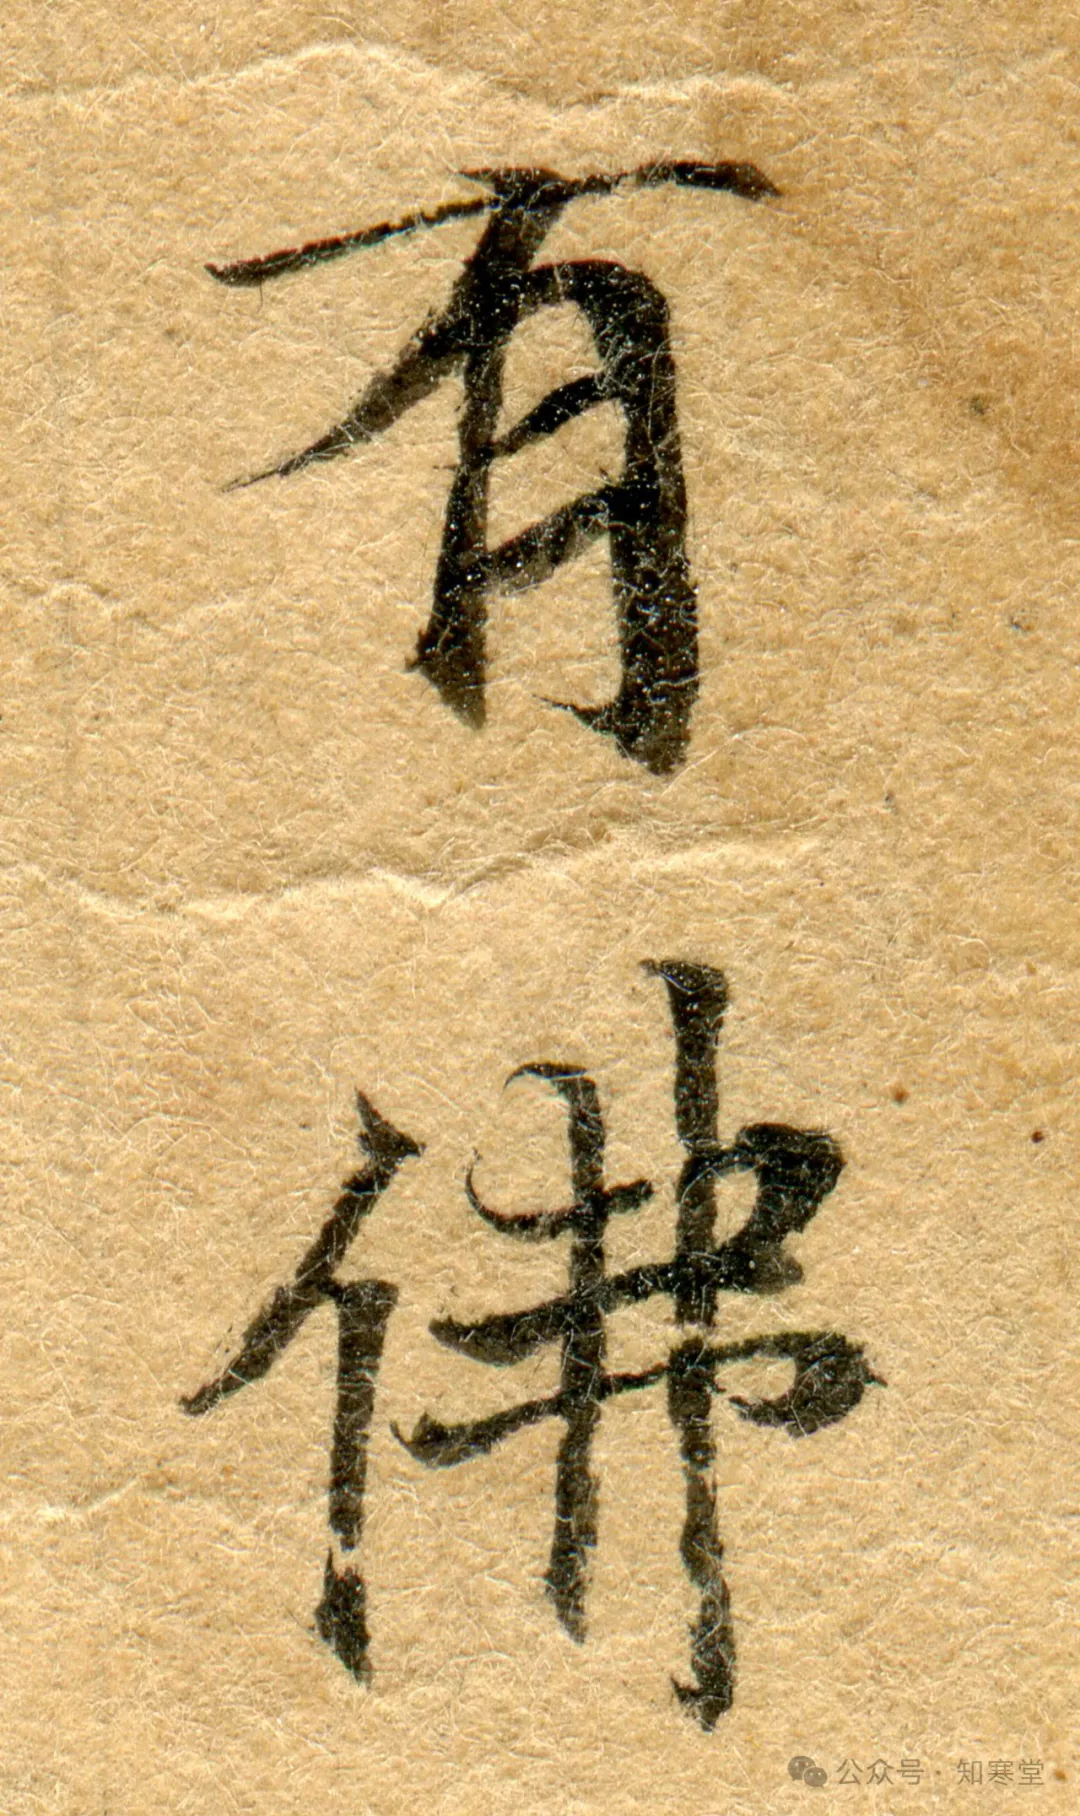 有佛
公众号·知寒堂